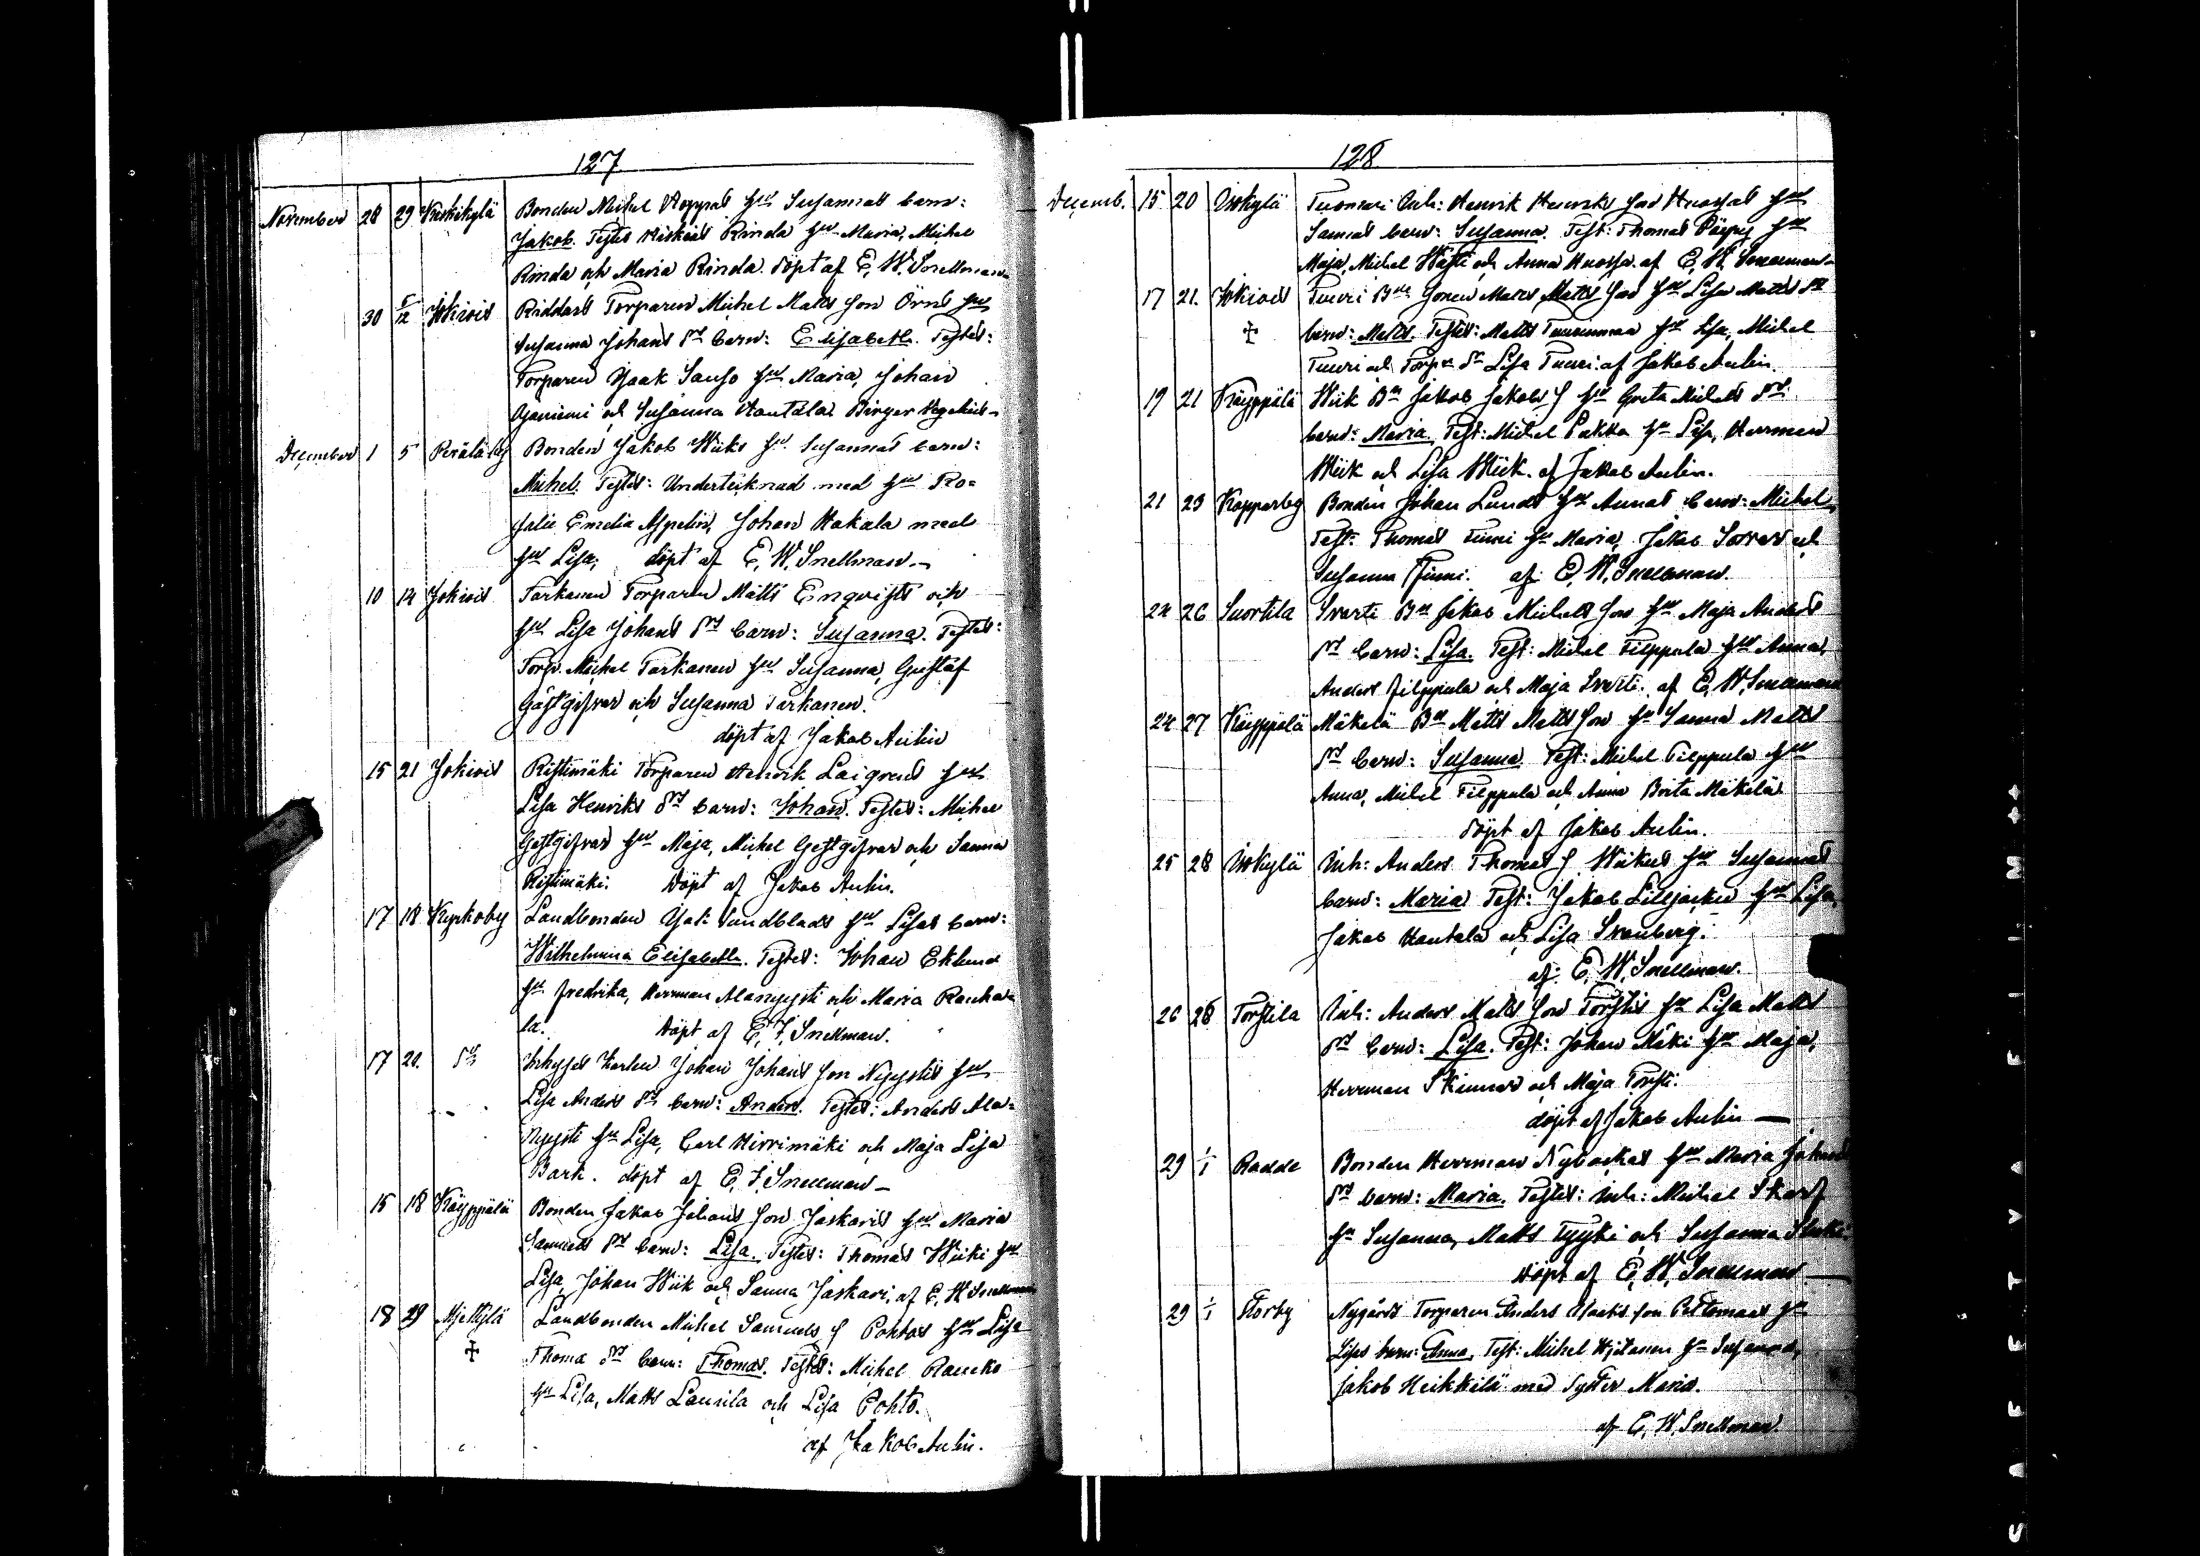 127
November 28 29 Keskikylä Bonden Michel Koppas hu Susannas barn:
Jakob. Testes Hiskias Rinda hu Maria, Michel
Rinda och Maria Rinda. döpt af E. W. Snellman
30 5/12 Jokivis Riddars Torparen Michel Matts son Örns hu
Susanna Johans dr barn: Elisabeth. Testes:
Torparen Isaak Sauso hu Maria, Johan
Ojaniemi och Susanna Hautala. Birger Hegelius
December 1 5 Perälä by Bonden Jakob Wiiks hu Susannas barn:
Michel. Testes: Undertecknad med hu Ro=
salie Emelia Aspelin, Johan Hakala med
hu Lisa, döpt af E. W. Snellman.
10 14 Jokivis Tarkanen Torparen Matts Enqvists och
hu Lisa Johans dr barn: Susanna. Testes:
Torp. Michel Tarkanen hu Susanna, Gustaf
Gästgifvar och Susanna Tarkanen.
döpt af Jakob Aulin
15 21 Jokivis Ristimäki Torparen Henrik Laiqvists hu
Lisa Henriks dr barn: Johan. Testes: Michel
Gestgifvar hu Maja, Michel Gestgifvar och Sanna
Ristimäki. Döpt af Jakob Aulin.
17 18 Kyrkoby Landbonden Isak Sundblads hu Lisas barn:
Wilhelmina Elisabeth. Testes: Johan Eklund
hu Fredrika, Herrman Alanyysti och Maria Rauha
la. Döpt af E. F. Snellman.
17 20. do Inhyses Karlen Johan Johans son Nyystis hu
Lisa Anders dr barn: Anders. Testes: Anders Ala-
Nyysti hu Lisa, Carl Hirvimäki och Maja Lisa
Bark. döpt af E. F. Snellman
15 18 Käyppälä Bonden Jakob Johans son Jaskaris hu Maria
Samuels dr barn: Lisa. Testes: Thomas Wiiki hu
Lisa, Johan Wiik och Sanna Jaskari, af E. W. Snellman
18 29 Mjetkylä Landbonden Michel Samuels s Pohtos hu Lisa
Thoma dr barn: Thomas. Testes: Michel Raucko
hu Lisa, Matts Laurila och Lisa Pohto.
af Jakob Aulin.
128
Decemb. 15 20 Ytokylä Tuomari Inh: Henrik Henriks son Huossas hu
Sannas barn: Susanna. Test: Thomas Päypy hu
Maja, Michel Wästi och Anna Huossa. af E. W. Snellman
17 21. Jokivis Tuuri Bde sonen Matts Matts son hu Lisa Matts dr
barn: Matts. Testes: Matts Tuurinmaa hu Lisa, Michel
Tuuri och Torp. dr Lisa Tuuri. af Jakob Aulin.
19 21 Käyppälä Wiik Bn Jakob Jakobs s hu Greta Michels dr
barn: Maria. Test: Michel Pukka hu Lisa, Herrman
Wiik och Lisa Wiik. af Jakob Aulin.
21 23 Kopparbg Bonden Johan Lunds hu Annas barn: Michel,
Test: Thomas Finni hu Maria, Jakob Sorvar och
Susanna Finni. af E. W. Snellman.
24 26 Suortila Sverti Bn Jakob Michels son hu Maja Anders
dr barn: Lisa. Test: Michel Filppula hu Anna,
Anders Filppula och Maja Sverti. af E. W. Snellman
24 27 Käyppälä Mäkelä Bn Matts Matts son hu Sanna Matts
dr barn: Susanna Test: Michel Filppula hu
Anna, Michel Filppula och Anna Brita Mäkelä
Döpt af Jakob Aulin.
25 28 Ytokylä Inh: Anders Thomas s Wiikus hu Susannas
barn: Maria Test: Jakob Lilljacku hu Lisa,
Jakob Hautala och Lisa Svanberg.
af: E. W. Snellman.
26 28 Torstila Inh: Anders Matts son Torstis hu Lisa Matts
dr barn: Lisa. Test: Johan Mäki hu Maja,
Herrman Skinnar och Maja Torsti.
döpt af Jakob Aulin
29 1/1 Radde Bonden Herrman Nybackas hu Maria Johans
dr barn: Maria. Testes: Inh: Michel Skarf
hu Susanna, Matts Tyyki och Susanna
Döpt af E. W. Snellman
29 1/1 Storby Nygårds Torparen Anders Isaaks son Pettomaas hu
Lisas barn: Anna, Test: Michel Hjitanen hu Susanna,
Jakob Heikkilä med Syster Maria.
af E. W. Snellman.
SAFETY FILM